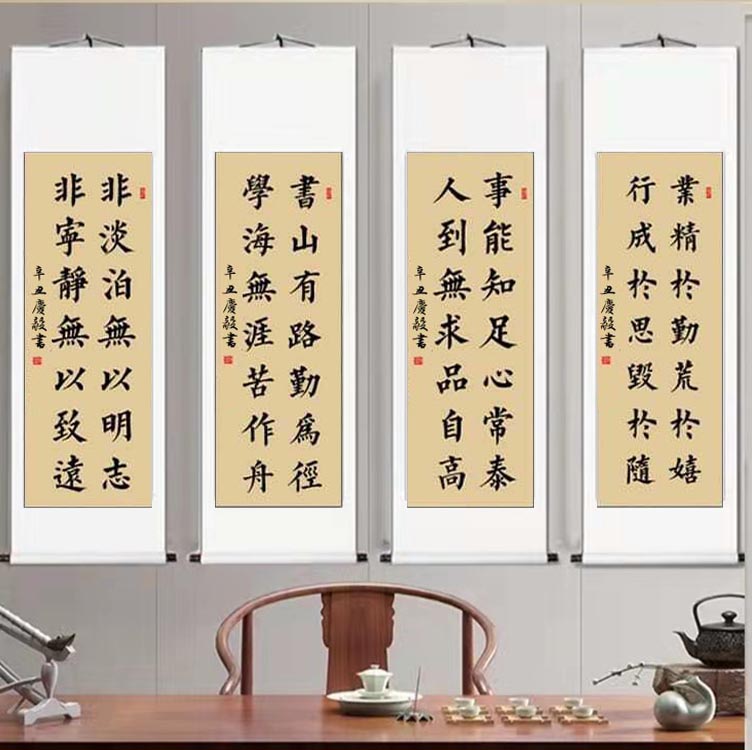 業精於勤荒於嬉
行成於思毀於隨
辛丑慶毅書
事能知足心常泰
人到無求品自高
辛丑慶毅書
書山有路勤爲徑
學海無涯苦作舟
辛丑慶毅書
非淡泊無以明志
非寧靜無以致遠
辛丑慶毅書